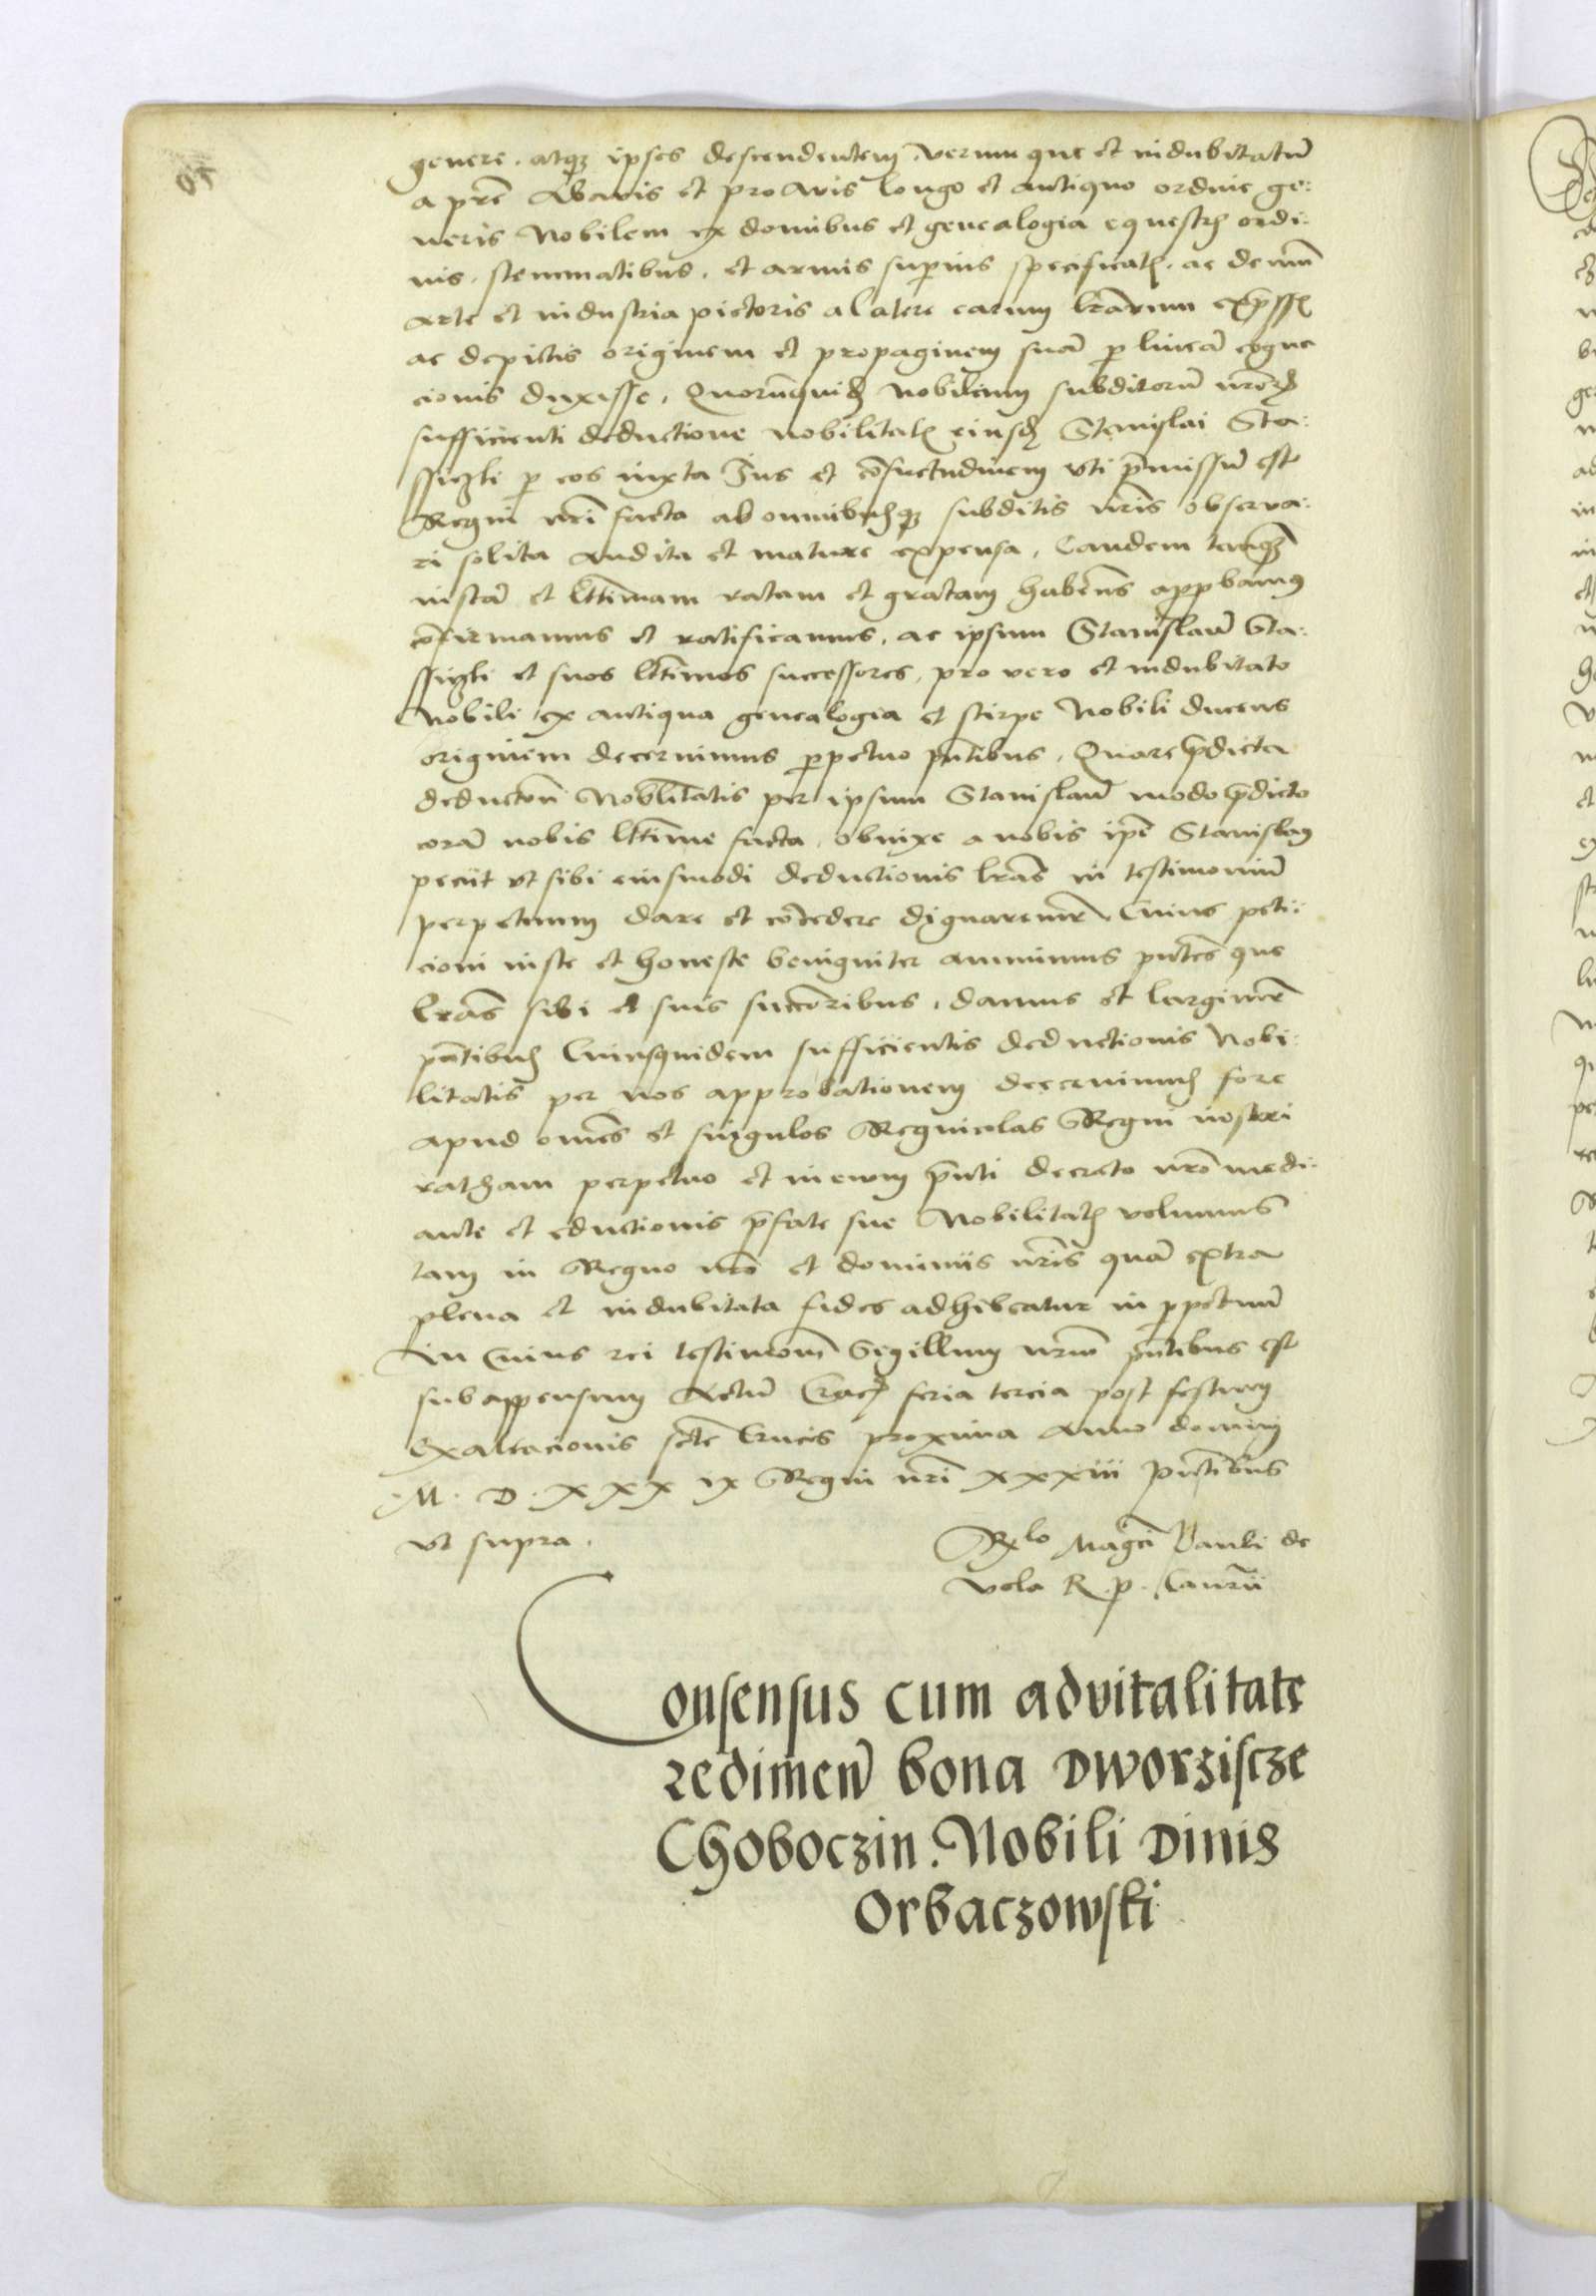 genere. atqz ipses descendentem. verum que et indubitatū
a prē Abavis et pro Avis longo et antiquo ordine ge:
neris Nobilem ex domibus et genealogia equestrꝭ ordi:
nis. stemmatibus. et armis superius specificatꝭ. ac demum
arte et industria pictoris a latere earum lrarum expssꝭ
ac depictis originem et propaginem suā p lineā cogna
cionis duxisse. Quorūquidꝫ nobilium subditorū nrorꝫ
sufficienti deductione nobilitatꝭ eiusdꝫ Stanislai Sta:
p eos iuxta Ius et cōsuetudinem vti pmissū est
Regni nri facta ab omnibusqꝫ subditis nris observa:
ri solita audita et mature expensa. Eandem tanqꝫ
iustā et lttimam ratam et gratam habens appbamus
cōfirmamus et ratificamus. ac ipsum Stanislaū Sta:
et suos lttimos successores. pro vero et indubitato
Nobili ex antiqua genealogia et stirpe Nobili ducens
originem decernimus ppetuo pntibus. Quare pdicta
deductōn Nobilitatis per ipsum Stanislaū modo pdicto
corā nobis lttime facta. obnixe a nobis ipē Stanislaus
peciit vt sibi eiusmodi deductionis lras in testimoniū
perpetuum dare et cōcedere dignaremr Cuius peti:
cioni iuste et honeste benigniter annuimus pntes que
lras sibi et suis succōribus. damus et largimr
pntibus Cuiusquidem sufficientis deductionis Nobi:
litatis per nos approbationem decernimus fore
apud omēs et singulos Regnicolas Regni nostri
ratham perpetuo et in evum pnti decreto nro medi:
ante et eductionis pfate sue Nobilitatꝭ volumus
tam in Regno nro et dominiis nris quā extra
plena et indubitata fides adhibeatur in ppetuū
In Cuius rei testimoni Sigillum nrum pntibus est
subappensum Actū Crac feria tercia post festum
Exaltacionis scte Crucis proxima Anno domini
M. D. XXX IX Regni nri xxxiii pntibus
vt supra.
Rlo Magci Pauli de
vola R. p. Canrii
Consensus cum advitalitate
redimen bona Dworziscze
Choboczin. Nobili Dinis
Orbaczowski